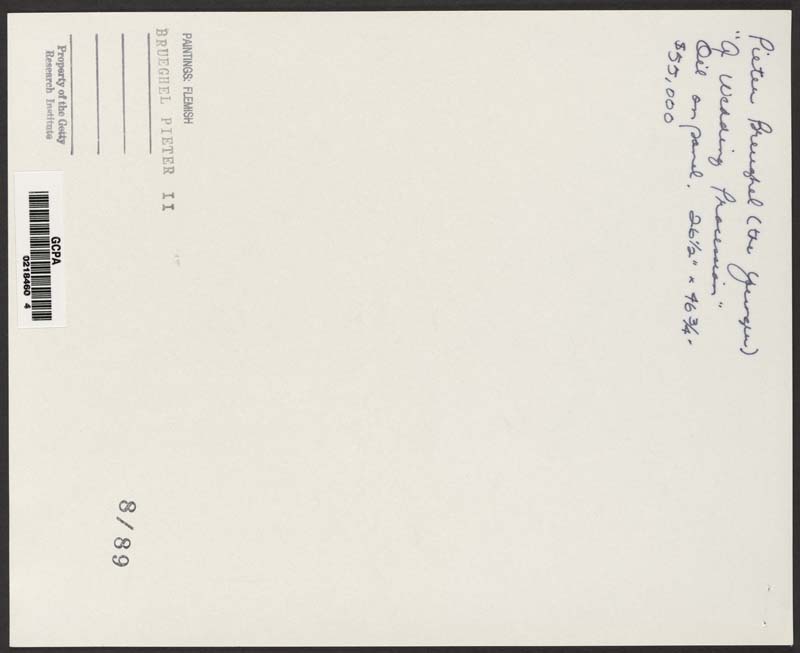 Pieter Brueghel (the Younger)
"A Wedding Procession"
Oil on panel. 26½" x 46¾"
$55,000
PAINTINGS: FLEMISH
BRUEGHEL PIETER II
Property of the Getty
Research Institute
GCPA
0218460 4
8/89